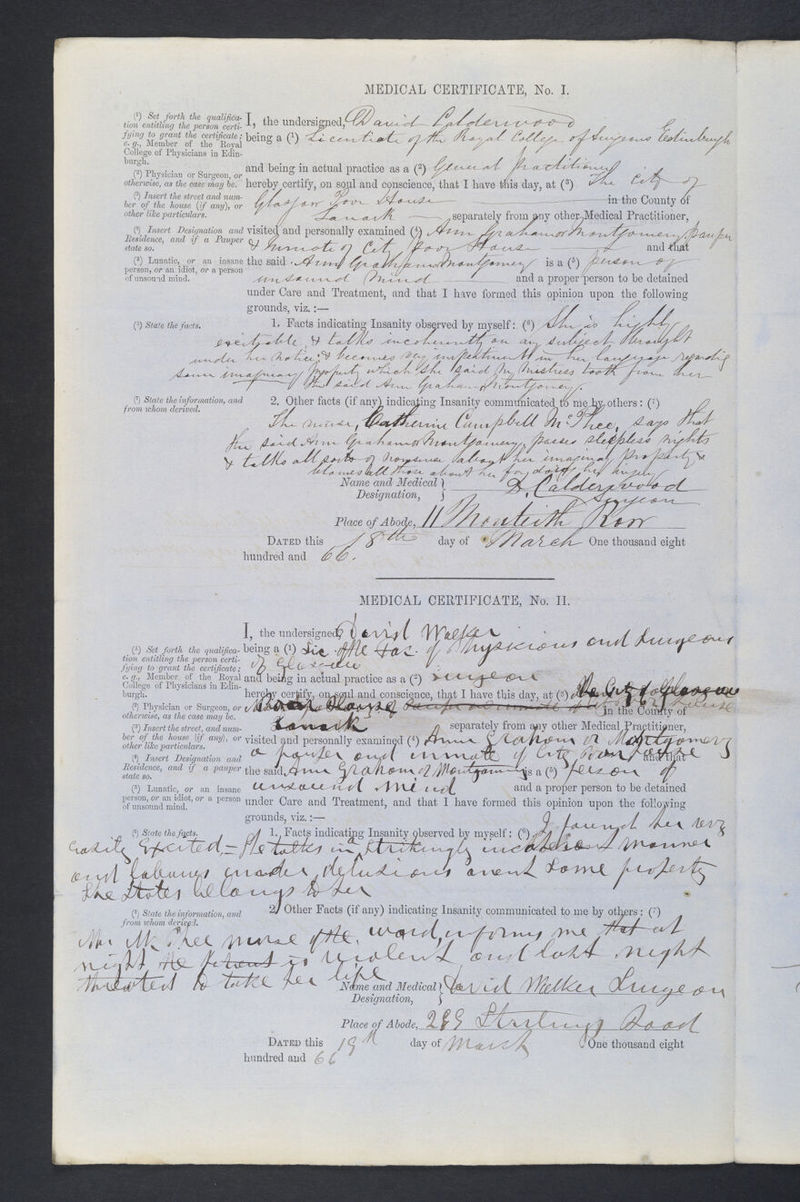 MEDICAL CERTIFICATE, No. I.
(¹) Set forth the qualifica-
tion entitling the person certi-
fying to grant the certificate;
e. g., Member of the Royal
College of Physicians in Edin-
burgh.
(²) Physician or Surgeon, or
otherwise, as the case may be.
(³) Insert the street and num-
ber of the house (if any), or
other like particulars.
(⁴) Insert Designation and
Residence, and if a Pauper
state so.
(⁵) Lunatic, or an insane
person, or an idiot, or a person
of unsound mind.
I, the undersigned, David Calderwood
being a (¹) Licentiate of the Royal College of Surgeons Edinburgh
and being in actual practice as a (²) General Practitioner
hereby certify, on soul and conscience, that I have this day, at (³) The City of
Glasgow Poor House in the County of
Lanark separately from any other Medical Practitioner,
visited and personally examined (⁴) Ann Graham or Montgomery, Pauper
& Inmate of City Poor House and that
the said Ann Graham or Montgomery is a (⁵) person of
unsound Mind and a proper person to be detained
under Care and Treatment, and that I have formed this opinion upon the following
grounds, viz.:—
(⁶) State the facts.
1. Facts indicating Insanity observed by myself: (⁶) She is highly
excitable, & talks incoherently on any subject brought
under her notice; & becomes very impertinent in her language regarding
some imaginary property which she said my Mistress took from her
the said Ann Graham or Montgomery.
(⁷) State the information, and
from whom derived.
2. Other facts (if any) indicating Insanity communicated to me by others: (⁷)
The nurse, Catherine Campbell McPhee, says that
the said Ann Graham or Montgomery, passes sleepless nights
& talks all sorts of nonsense about her imaginary property &
blames all those about her for doing her injury
Name and Medical Designation, } D. Calderwood
Surgeon
Place of Abode, 11 Monteith Row
DATED this 18th day of March One thousand eight
hundred and 66.
MEDICAL CERTIFICATE, No. II.
(¹) Set forth the qualifica-
tion entitling the person certi-
fying to grant the certificate;
e. g., Member of the Royal
College of Physicians in Edin-
burgh.
(²) Physician or Surgeon, or
otherwise, as the case may be.
(³) Insert the street, and num-
ber of the house (if any), or
other like particulars.
(⁴) Insert Designation and
Residence, and if a pauper
state so.
(⁵) Lunatic, or an insane
person, or an idiot, or a person
of unsound mind.
I, the undersigned, David Walker
being a (¹) Lic. of the Fac. of Physicians and Surgeons
of Glasgow
and being in actual practice as a (²) Surgeon
hereby certify, on soul and conscience, that I have this day, at (³) the City of Glasgow
Poor House in the County of
Lanark separately from any other Medical Practitioner,
visited and personally examined (⁴) Ann Graham or Montgomery
a pauper and inmate of City Poor House and that
the said, Ann Graham or Montgomery is a (⁵) person of
unsound mind and a proper person to be detained
under Care and Treatment, and that I have formed this opinion upon the following
grounds, viz.:—
(⁶) State the facts.
1. Facts indicating Insanity observed by myself: (⁶) I found her very
easily excited — She talks in a strikingly incoherent manner
and labours under delusions anent some property
She states belongs to her
(⁷) State the information, and
from whom derived.
2. Other Facts (if any) indicating Insanity communicated to me by others: (⁷)
Mrs McPhee nurse of the ward, informs me that at
night is violent and last night
threatened to take her life
Name and Medical Designation, } David Walker Surgeon
Place of Abode, Stirling Road
DATED this 19th day of March One thousand eight
hundred and 66